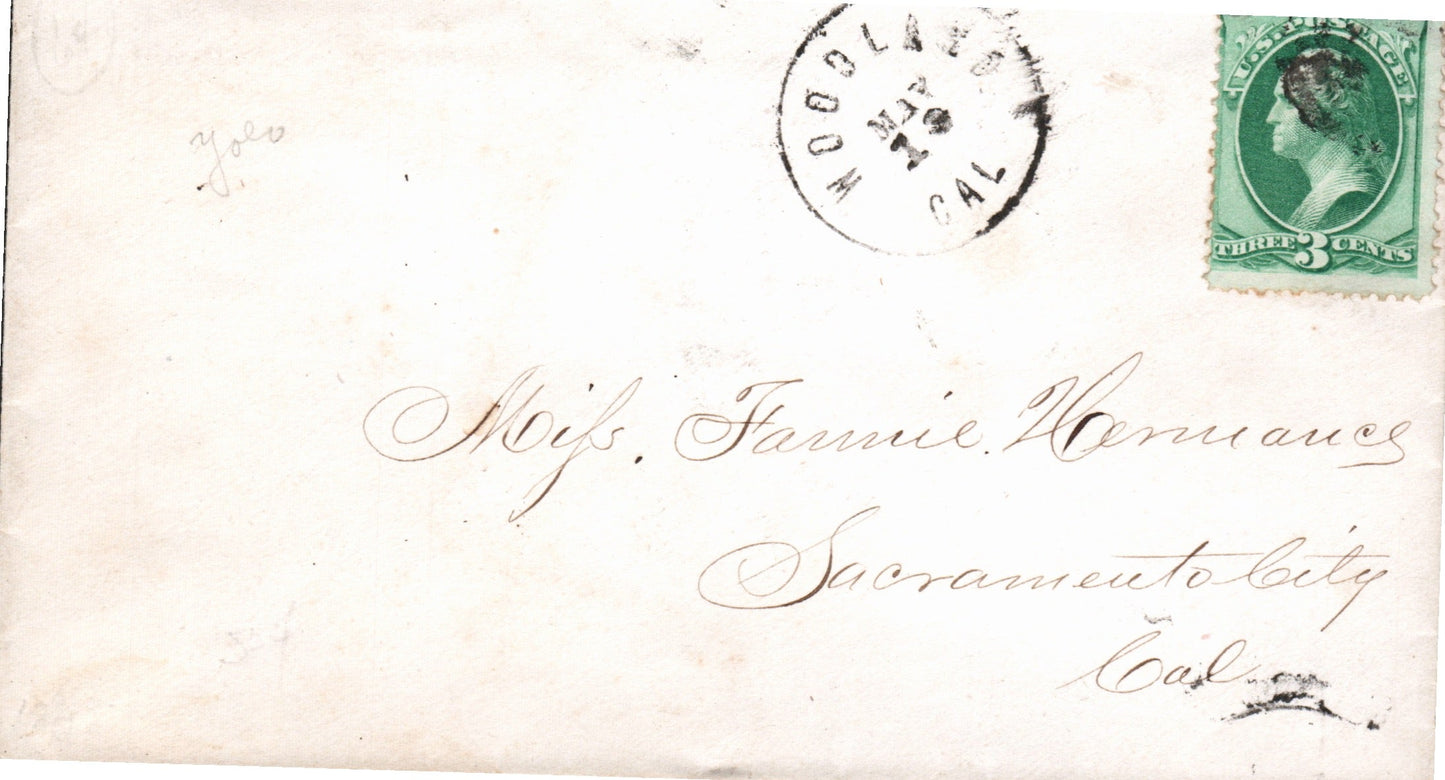 WOODLAND
CAL
MAY
19
U.S. POSTAGE
THREE 3 CENTS
Yolo
Miss. Fannie. Hermance
Sacramento City
Cal